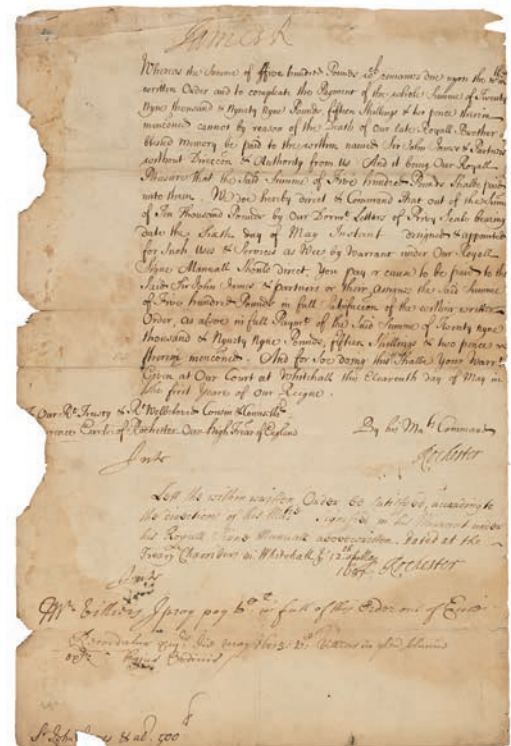 James R
Whereas the Summe of ffive hundred Pounds remaines due upon the
written Order and to compleate the Payment of the whole Summe of Twenty
Nyne thousand & Nynety Nyne Pounds, fifteen Shillings & two pence therein
menconed cannot by reason of the Death of our late Royall Brother of
blessed Memory be paid to the within named Sir John James & Partners
without Direccon & Authority from Us And it being Our Royall
Pleasure that the said Summe of Five hundred Pounds Shalbe paid
unto them. We doe hereby direct & Command that out of the Sum
of Ten thousand Pounds by Our Dormt. Letters of Privy Seale bearing
date the Sixth day of May Instant designed & appointed
for Such Uses & Services as Wee by Warrant under Our Royall
Signe Manuall Should direct, You pay or cause to be paid to the
Said Sir John James & partners or their assignes the Said Summe
of Five hundred Pounds in full Satisfaccon of the within written
Order, as above in full Paymt. of the Said Summe of Twenty nyne
thousand & Nynety Nyne Pounds, fifteen Shillings & two pence
therein menconed. And for Soe doing this Shalbe Your Warrt.
Given at Our Court at Whitehall this Eleaventh day of May in
the first Yeare of our Reigne.
Our Rt. Trusty & Rt. Welbeloved Cousin &
Earle of Rochester Our high Trear of England
By his Mats. Command
Rochester
Lett the within written Order be Satisfied, according to
the directions of his Matie. Signified in his Warrant under
his Royall Signe Manuall abovewritten. Dated at the
Treary Chambers in Whitehall ye 12th of May
Rochester
Mr. Villiers I pray pay in full of this Order out of
Sr. John & al. 500